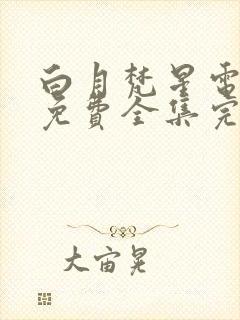 白月梵星電
免費全集完
大宙晃